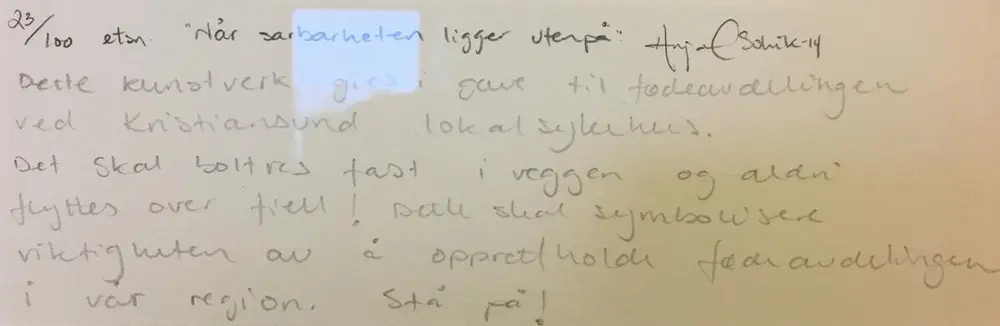 23/100 etsn "Når sarbarheten ligger utenpå"
Dette kunstverk gies i gave til fødeavdelingen
ved Kristiansund lokalsykehus.
Det skal boltres fast i veggen og aldri
flyttes over fjell! Dette skal symbolisere
viktigheten av å opprettholde fødeavdelingen
i vår region. Stå på!